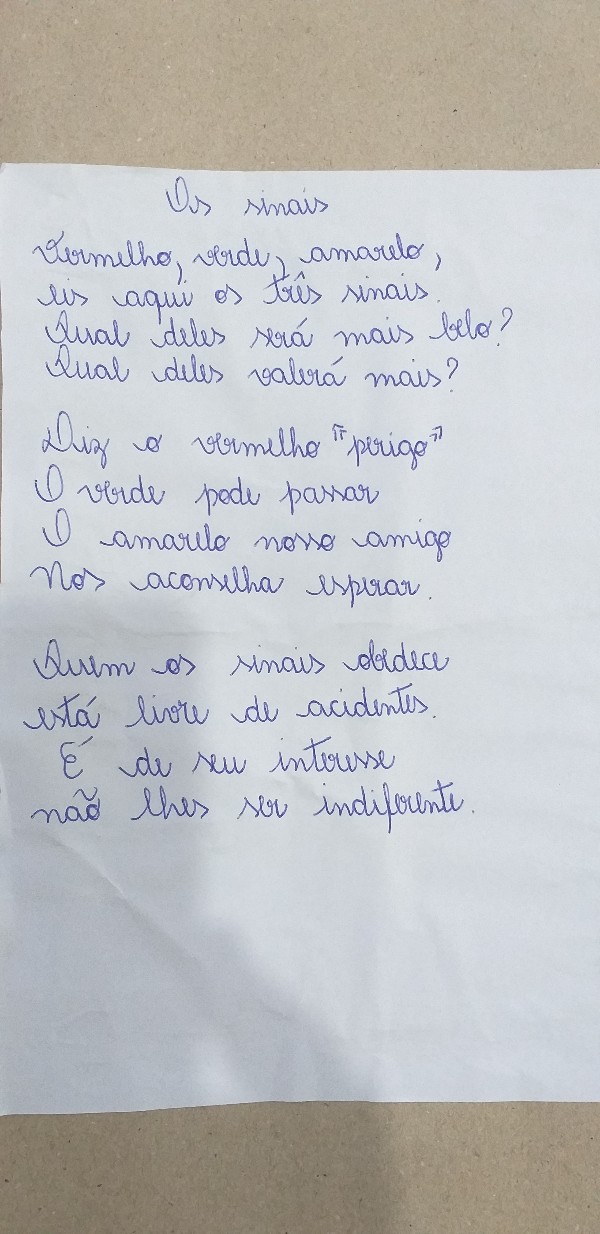 Os sinais
Vermelho, verde, amarelo,
eis aqui os três sinais.
Qual deles será mais belo?
Qual deles valerá mais?
Diz o vermelho "perigo"
O verde pode passar
O amarelo nosso amigo
Nos aconselha esperar.
Quem os sinais obedece
está livre de acidentes.
É de seu interesse
não lhes ser indiferente.